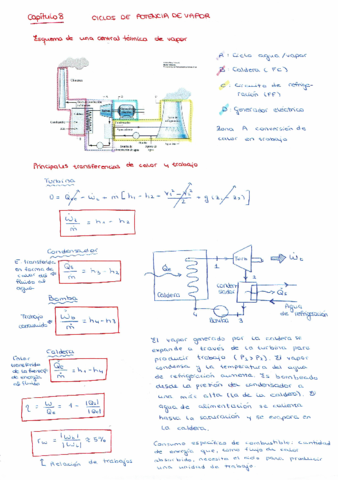 Capítulo 8
CICLOS DE POTENCIA DE VAPOR
Esquema de una central térmica de vapor
A: Ciclo agua/vapor
B: Caldera (FC)
C: Circuito de refrige-
ración (FF)
D: Generador eléctrico
Zona A conversión de
calor en trabajo
Principales transferencias de calor y trabajo
Turbina
Ẇt/ṁ = h1 - h2
Condensador
Q̇s/ṁ = h2 - h3
Bomba
Trabajo
Ẇb/ṁ = h4 - h3
Caldera
Q̇e/ṁ = h1 - h4
de energía
rw = |Ẇb|/|Ẇt| ≈ 5%
Relación de trabajos
Q̇e
Caldera
1
Turb
Ẇt
2
conden
sador
Q̇s
Agua
de refrigeración
3
Bomba
4
El vapor generado por la caldera se
expande a través de la turbina para
producir trabajo (P1>P2). El vapor
condensa y la temperatura del agua
de refrigeración aumenta. Es bombeado
desde la presión del condensador a
una más alta (la de la caldera). El
agua de alimentación se calienta
hasta la saturación y se evapora en
la caldera.
Consumo específico de combustible: cantidad
de energía que, como flujo de calor
absorbido, necesita el ciclo para producir
una unidad de trabajo